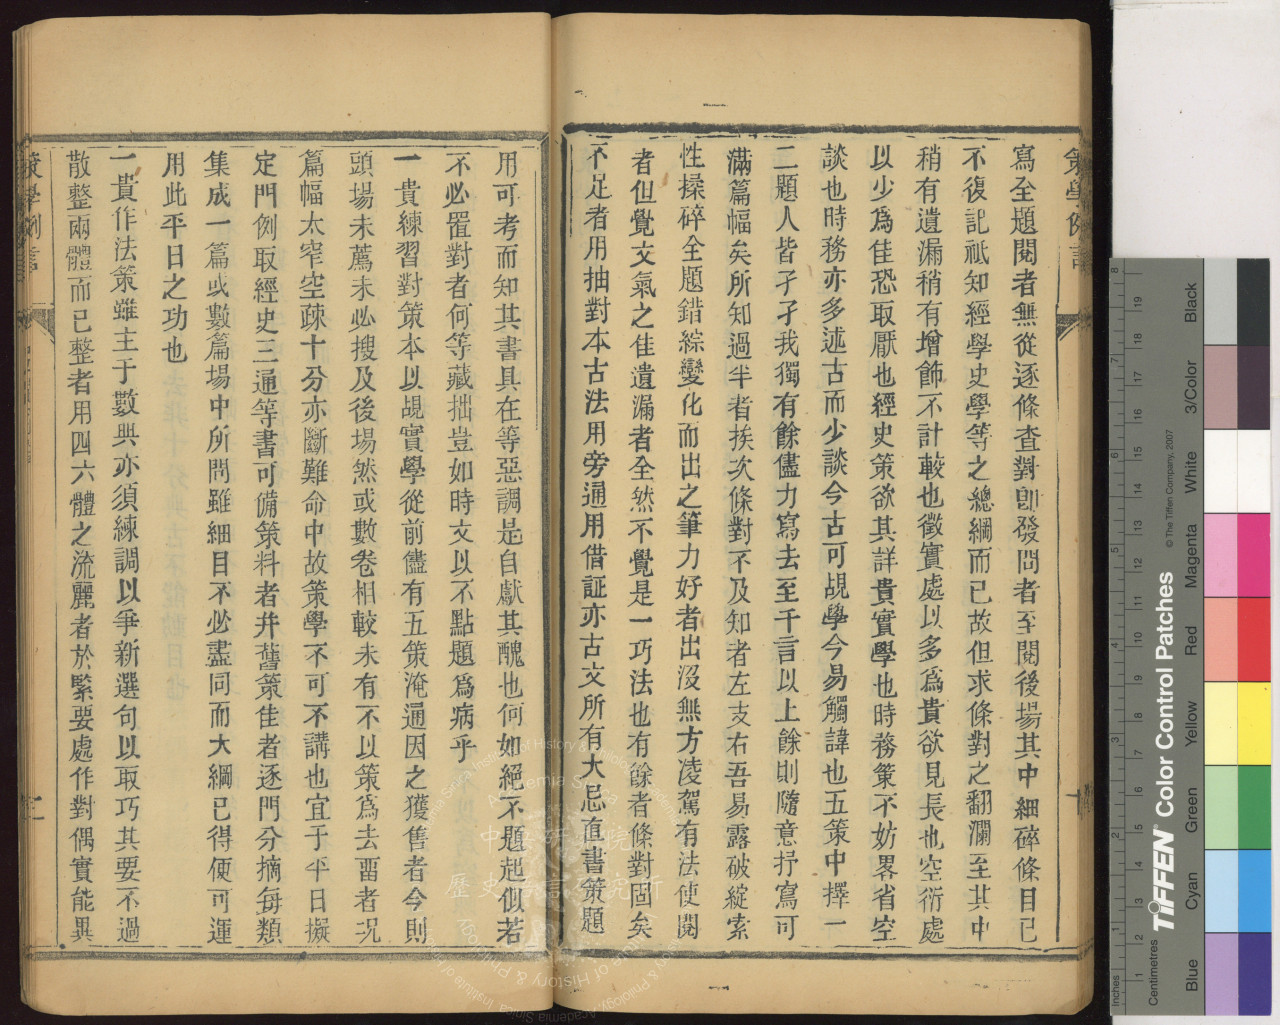 寫全題閱者無從逐條查對卽發問者至閱後場其中細碎條目已
不復記祗知經學史學等之總綱而已故但求條對之翻瀾至其中
稍有遺漏稍有增飾不計較也徵實處以多爲貴欲見長也空衍處
以少爲佳恐取厭也經史策欲其詳貴實學也時務策不妨畧省空
談也時務亦多述古而少談今古可覘學今易觸諱也五策中擇一
二題人皆孑孑我獨有餘儘力寫去至千言以上餘則隨意抒寫可
滿篇幅矣所知過半者挨次條對不及知者左支右吾易露破綻索
性揉碎全題錯綜變化而出之筆力好者出沒無方凌駕有法使閱
者但覺文氣之佳遺漏者全然不覺是一巧法也有餘者條對固矣
不足者用抽對本古法用旁通用借証亦古文所有大忌直書策題
用可考而知其書具在等惡調是自獻其醜也何如絕不題起似若
不必置對者何等藏拙豈如時文以不點題爲病乎
一貴練習對策本以覘實學從前儘有五策淹通因之獲售者今則
頭場未薦未必搜及後場然或數卷相較未有不以策爲去畱者況
篇幅太窄空疎十分亦斷難命中故策學不可不講也宜于平日擬
定門例取經史三通等書可備策料者幷舊策佳者逐門分摘每類
集成一篇或數篇場中所問雖細目不必盡同而大綱已得便可運
用此平日之功也
一貴作法策雖主于數典亦須練調以爭新選句以取巧其要不過
散整兩體而已整者用四六體之流麗者於緊要處作對偶實能異
策學例言
二
中央研究院
歷史語言研究所
Academia Sinica
Institute of History & Philology
Inches
Centimetres
TIFFEN Color Control Patches
© The Tiffen Company, 2007
Blue
Cyan
Green
Yellow
Red
Magenta
White
3/Color
Black